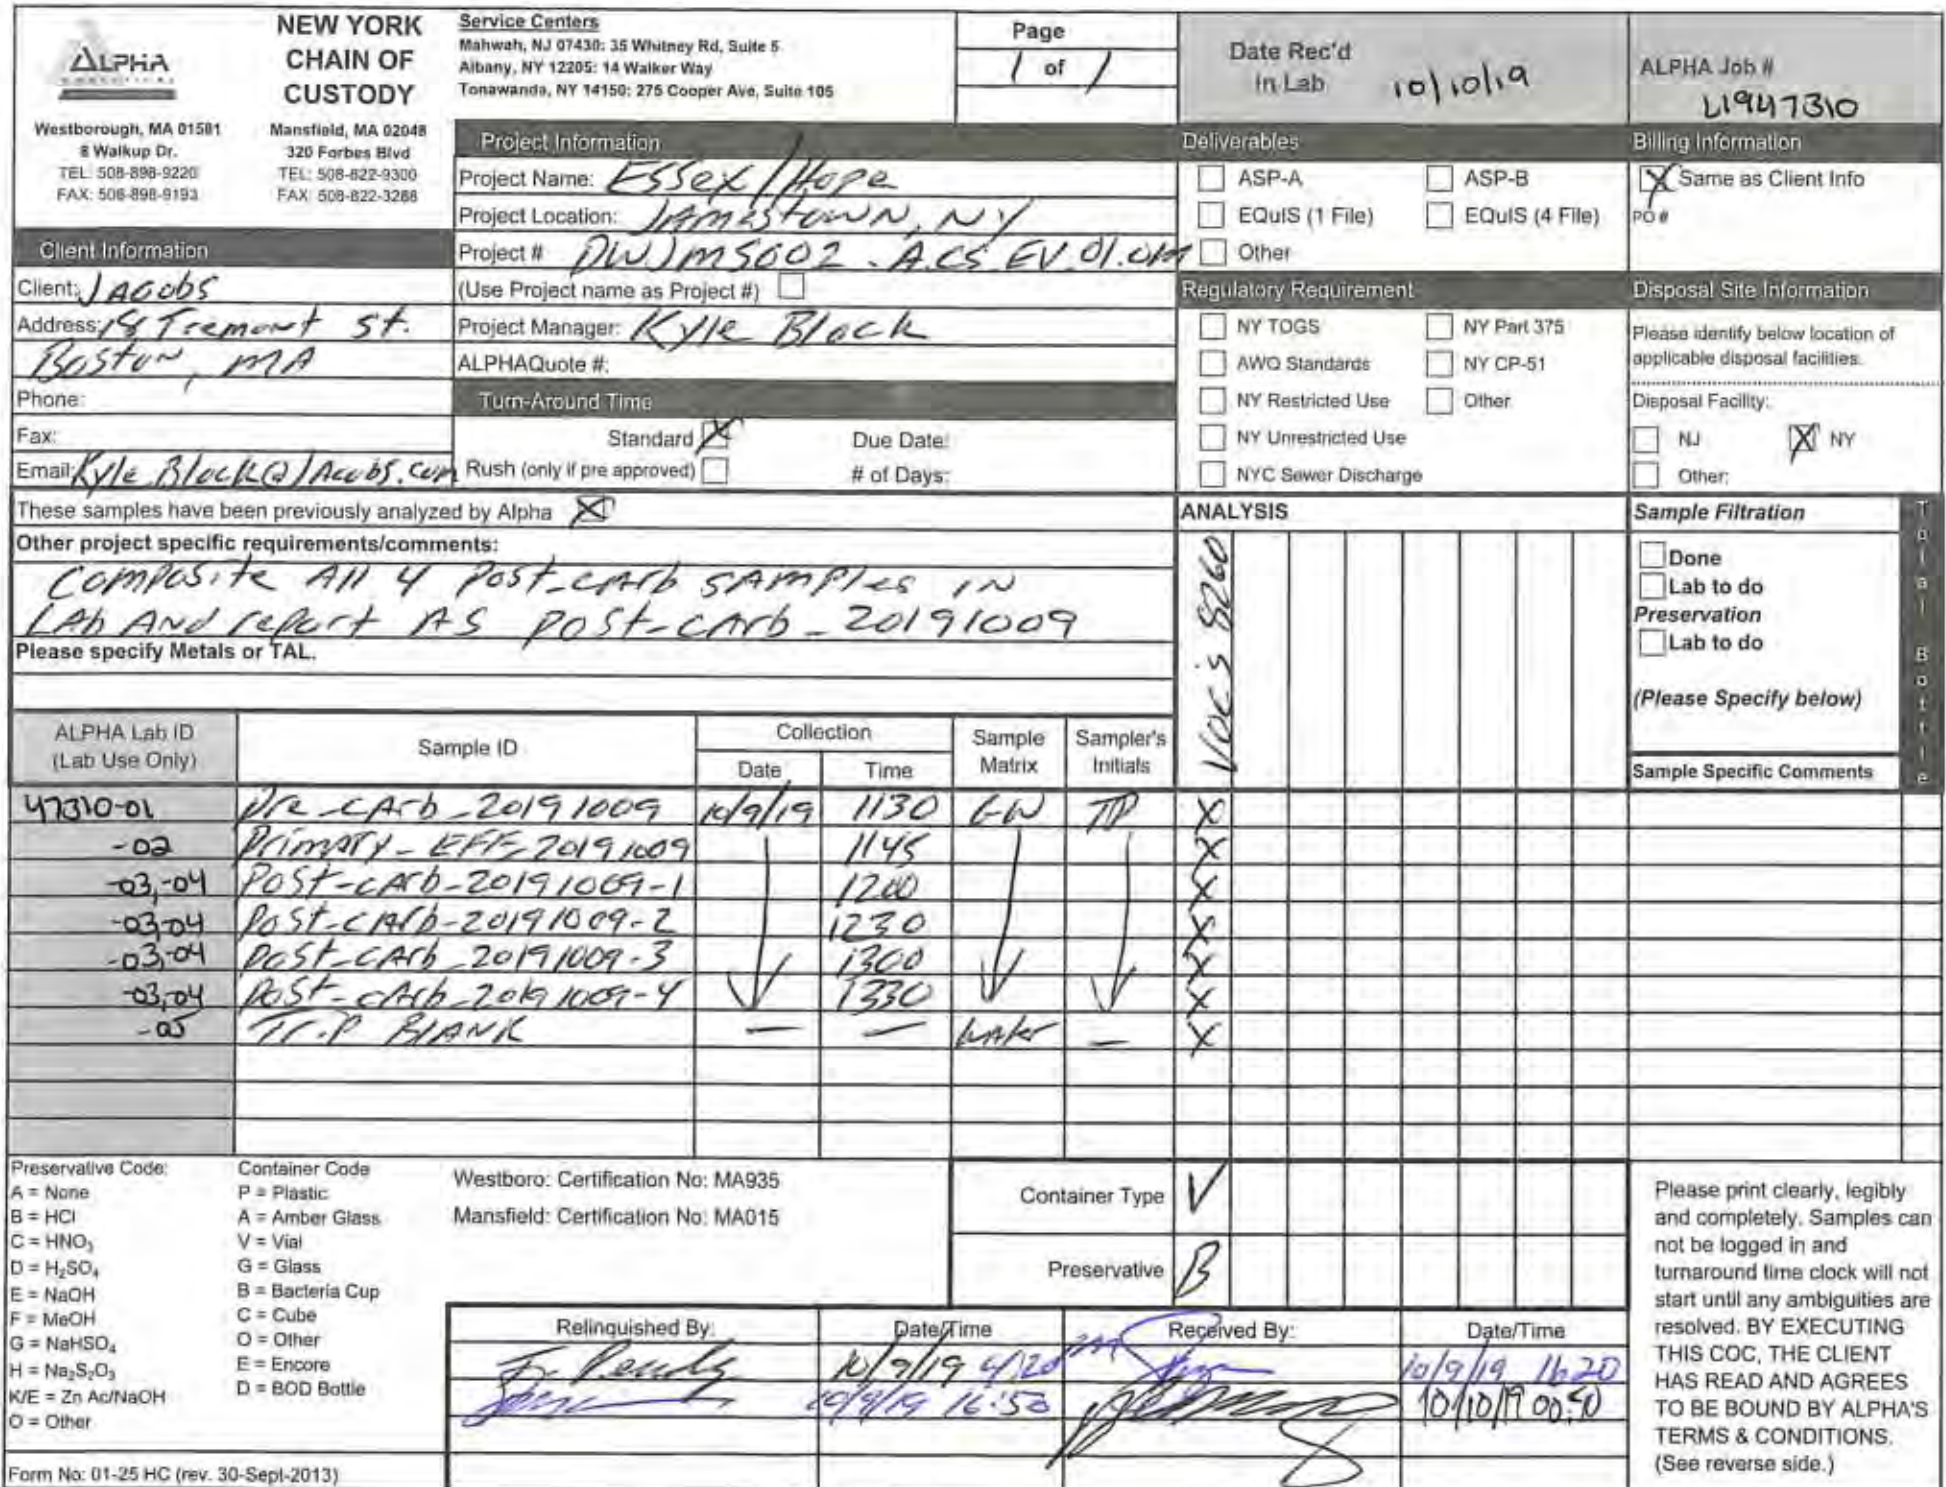 ALPHA
NEW YORK
CHAIN OF
CUSTODY
Westborough, MA 01581
8 Walkup Dr.
TEL: 508-898-9220
FAX: 508-898-9193
Mansfield, MA 02048
320 Forbes Blvd
TEL: 508-822-9300
FAX: 508-822-3288
Service Centers
Mahwah, NJ 07430: 35 Whitney Rd, Suite 5
Albany, NY 12205: 14 Walker Way
Tonawanda, NY 14150: 275 Cooper Ave, Suite 105
Page
1 of 1
Date Rec'd
in Lab 10/10/19
ALPHA Job #
L1947310
Project Information
Project Name: Essex/Hope
Project Location: Jamestown, NY
Project #
(Use Project name as Project #)
Project Manager: Kyle Block
ALPHAQuote #:
Turn-Around Time
Standard X Due Date:
Rush (only if pre approved) # of Days:
Client Information
Client: JACObS
Address: 18 Tremont St.
Boston, MA
Phone:
Fax:
Email: Kyle.Block@JAcobs.com
Deliverables
ASP-A ASP-B
EQuIS (1 File) EQuIS (4 File)
Other
Regulatory Requirement
NY TOGS NY Part 375
AWQ Standards NY CP-51
NY Restricted Use Other
NY Unrestricted Use
NYC Sewer Discharge
Billing Information
X Same as Client Info
PO #
Disposal Site Information
Please identify below location of
applicable disposal facilities.
Disposal Facility:
NJ X NY
Other:
These samples have been previously analyzed by Alpha X
Other project specific requirements/comments:
Composite All 4 Post-cArb SAMPles IN
LAb And report AS post-cArb_20191009
Please specify Metals or TAL.
ANALYSIS
VOC's 8260
Sample Filtration
Done
Lab to do
Preservation
Lab to do
(Please Specify below)
Sample Specific Comments
Total Bottle
ALPHA Lab ID
(Lab Use Only)
Sample ID
Collection
Date Time
Sample
Matrix
Sampler's
Initials
47310-01 Pre_cArb_20191009 10/9/19 1130 GW TP X
-02 Primary_EFF_20191009 1145 X
-03,-04 Post-cArb-20191009-1 1200 X
-03,-04 Post-cArb-20191009-2 1230 X
-03,-04 Post-cArb_20191009-3 1300 X
-03,04 Post-cArb_20191009-4 1330 X
-05 Trip BlANK — — WAter — X
Preservative Code:
A = None
B = HCl
C = HNO₃
D = H₂SO₄
E = NaOH
F = MeOH
G = NaHSO₄
H = Na₂S₂O₃
K/E = Zn Ac/NaOH
O = Other
Container Code
P = Plastic
A = Amber Glass
V = Vial
G = Glass
B = Bacteria Cup
C = Cube
O = Other
E = Encore
D = BOD Bottle
Westboro: Certification No: MA935
Mansfield: Certification No: MA015
Container Type V
Preservative B
Relinquished By: Date/Time Received By: Date/Time
10/9/19 10/9/19 1620
10/9/19 16:50 10/10/19
Please print clearly, legibly
and completely. Samples can
not be logged in and
turnaround time clock will not
start until any ambiguities are
resolved. BY EXECUTING
THIS COC, THE CLIENT
HAS READ AND AGREES
TO BE BOUND BY ALPHA'S
TERMS & CONDITIONS.
(See reverse side.)
Form No: 01-25 HC (rev. 30-Sept-2013)